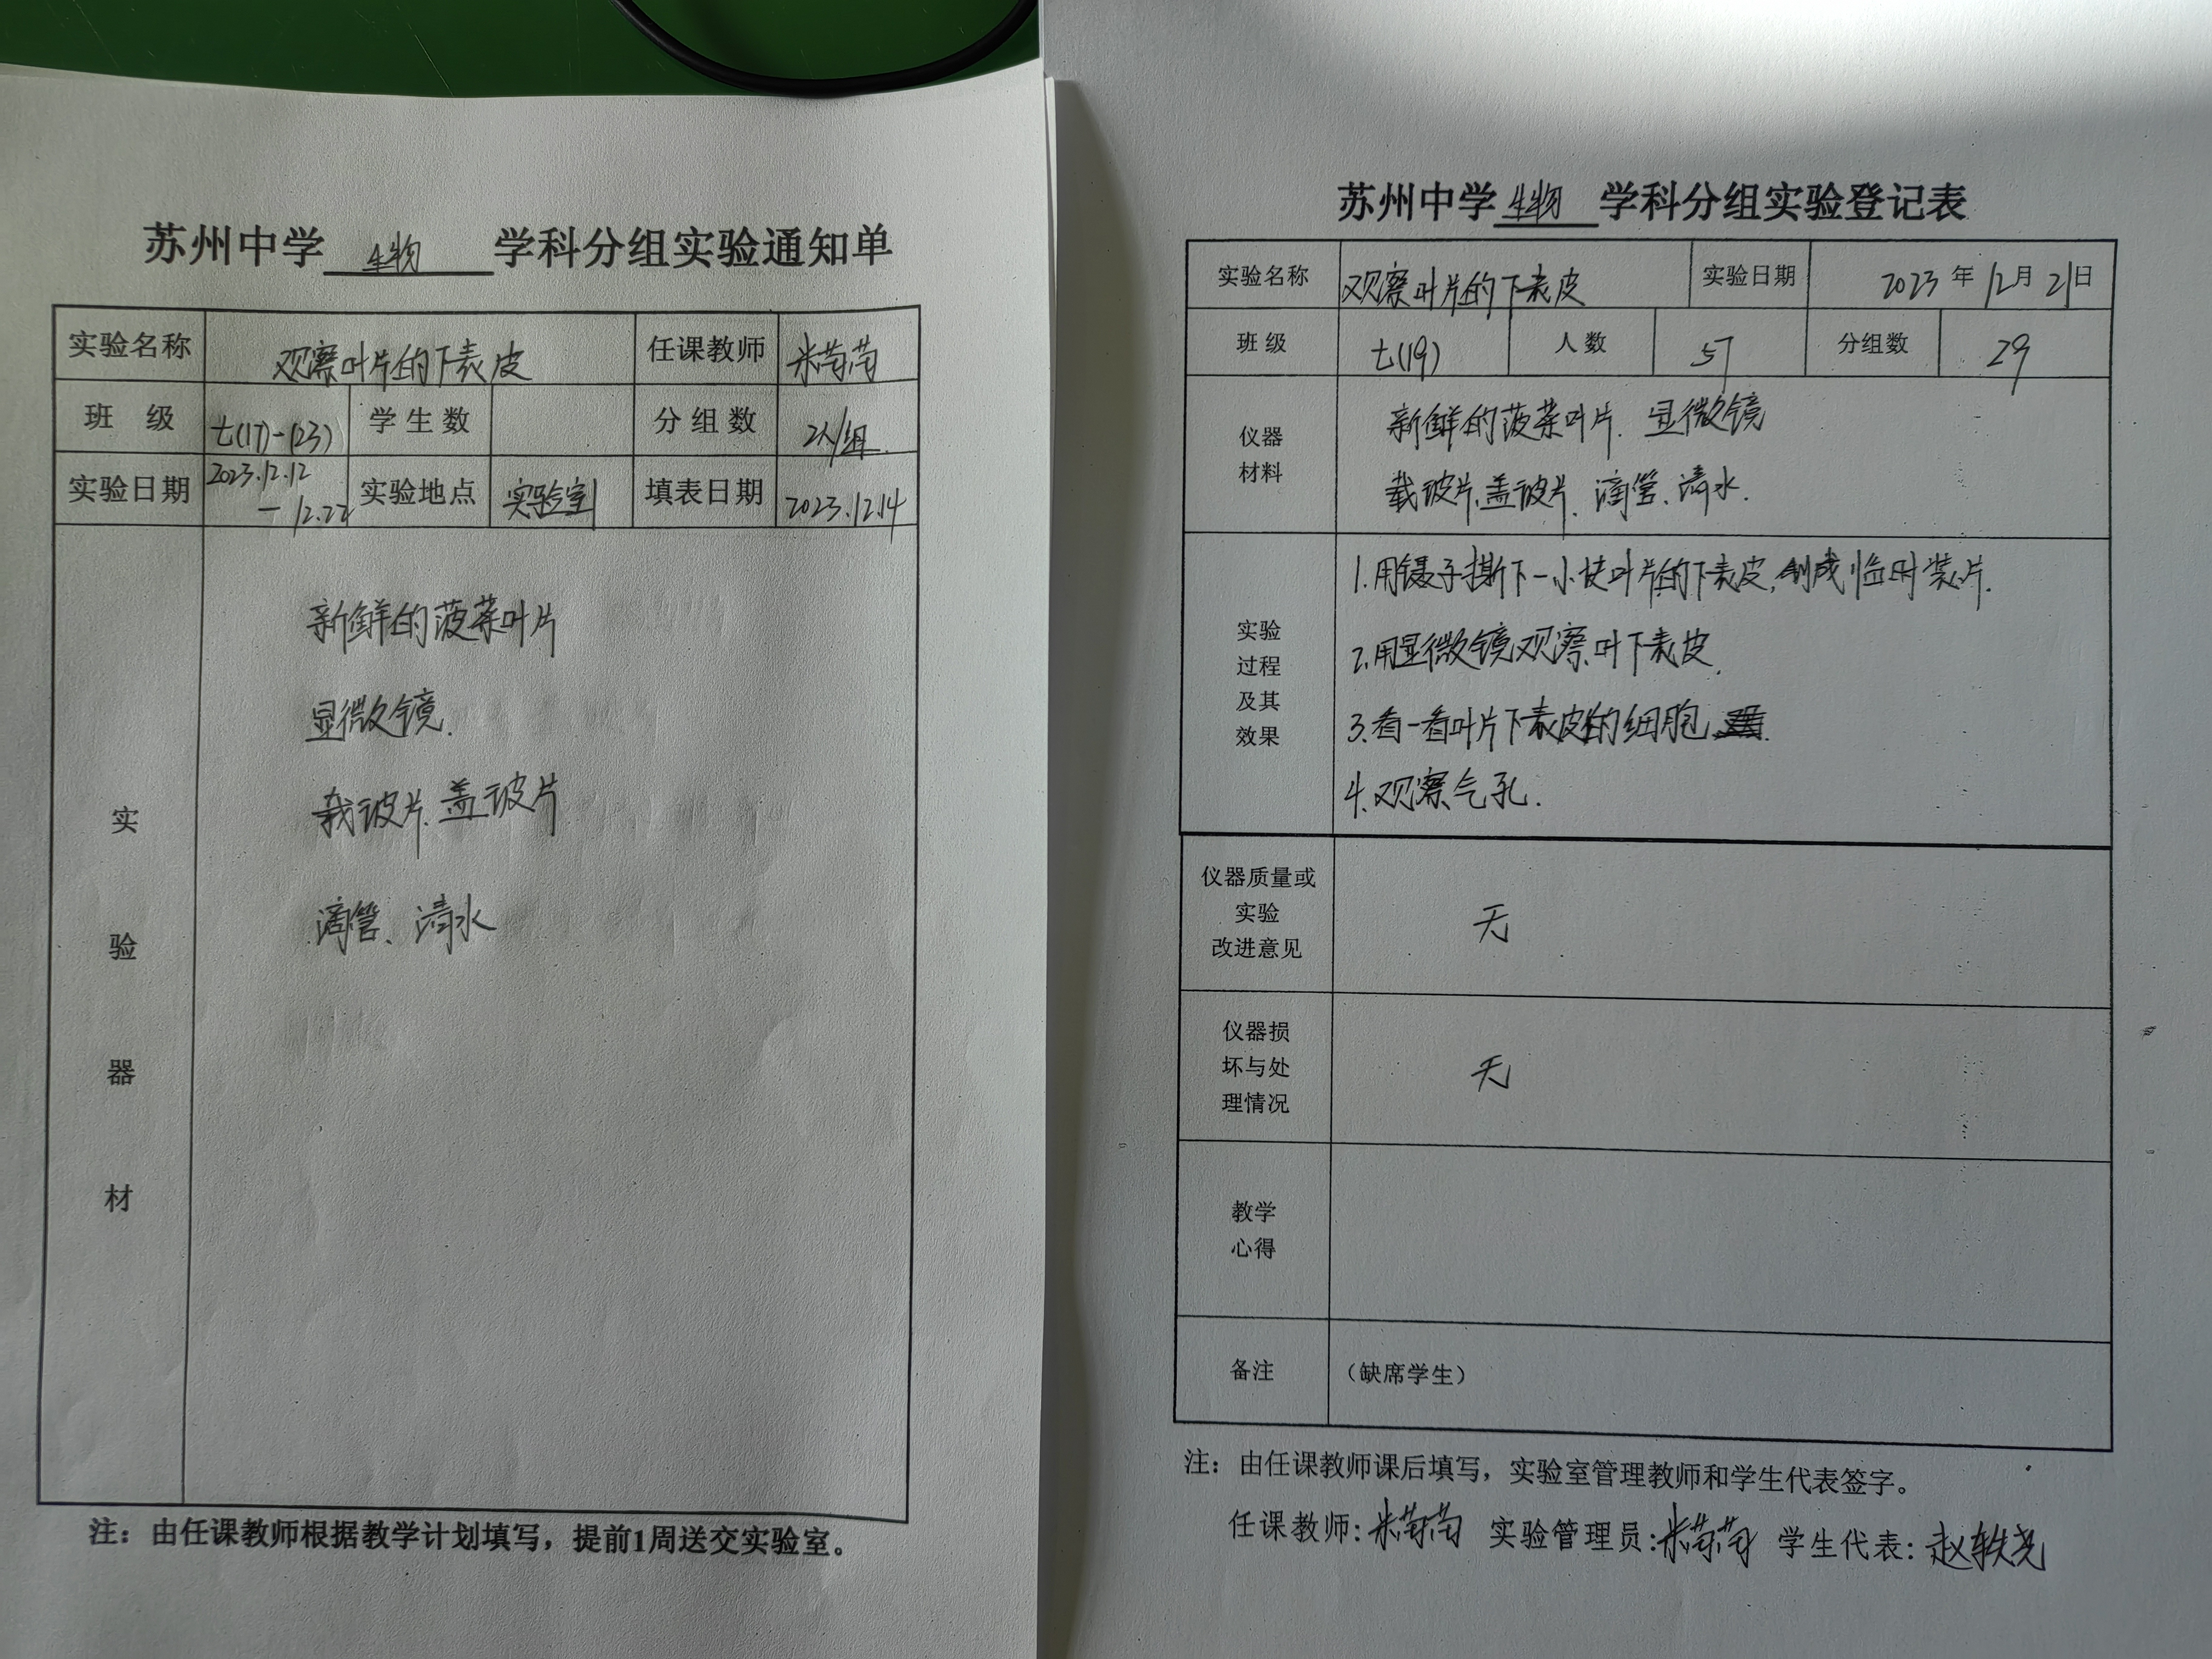 苏州中学 生物 学科分组实验通知单
实验名称 观察叶片的下表皮 任课教师 米菊菊
班 级 七(17)-(23) 学生数 分组数 2人/组.
实验日期 2023.12.12 — 12.22 实验地点 实验室 填表日期 2023.12.14
实验器材
新鲜的菠菜叶片
显微镜.
载玻片.盖玻片
滴管、清水
注：由任课教师根据教学计划填写，提前1周送交实验室。
苏州中学 生物 学科分组实验登记表
实验名称 观察叶片的下表皮 实验日期 2023 年 12 月 21 日
班 级 七(19) 人 数 57 分组数 29
仪器材料
新鲜的菠菜叶片. 显微镜
载玻片.盖玻片. 滴管、清水.
实验过程及其效果
1.用镊子撕下一小块叶片的下表皮,制成临时装片.
2.用显微镜观察叶下表皮.
3.看一看叶片下表皮的细胞.
4.观察气孔.
仪器质量或实验改进意见 无
仪器损坏与处理情况 无
教学心得
备注 （缺席学生）
注：由任课教师课后填写，实验室管理教师和学生代表签字。
任课教师:米菊菊 实验管理员:米菊菊 学生代表:赵轶尧